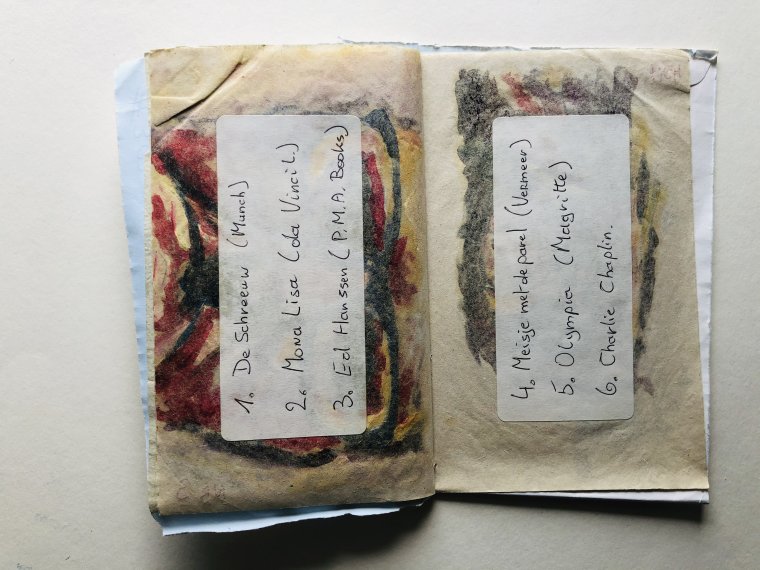 1. De Schreeuw (Munch)
2. Mona Lisa (da Vinci L.)
3. Ed Hanssen (P.M.A. Books)
4. Meisje met de parel (Vermeer)
5. Olympia (Magritte)
6. Charlie Chaplin.